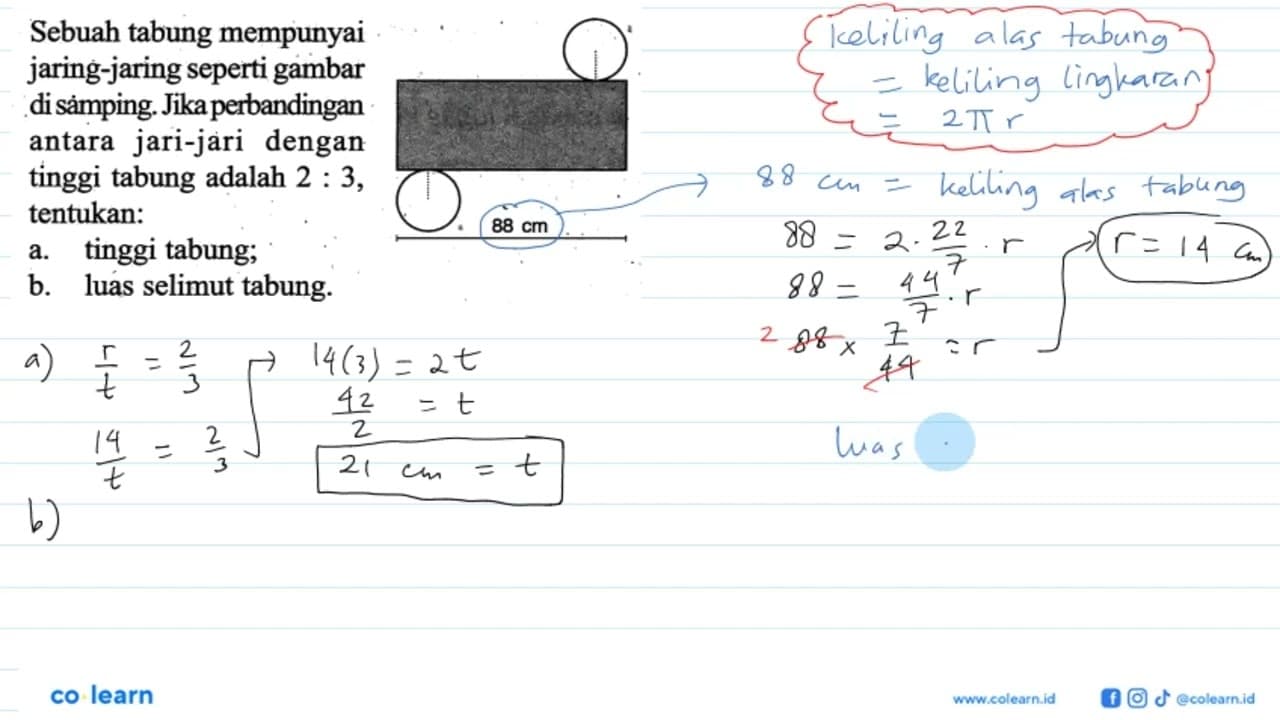 Sebuah tabung mempunyai
jaring-jaring seperti gambar
di samping. Jika perbandingan
antara jari-jari dengan
tinggi tabung adalah 2 : 3,
tentukan:
a. tinggi tabung;
b. luas selimut tabung.
88 cm
keliling alas tabung
= keliling lingkaran
= 2πr
88 cm = keliling alas tabung
88 = 2 . 22/7 . r
88 = 44/7 . r
2 88 x 7/44 = r
r = 14 cm
a) r/t = 2/3
14/t = 2/3
14(3) = 2t
42/2 = t
21 cm = t
b)
luas
co learn
www.colearn.id
@colearn.id